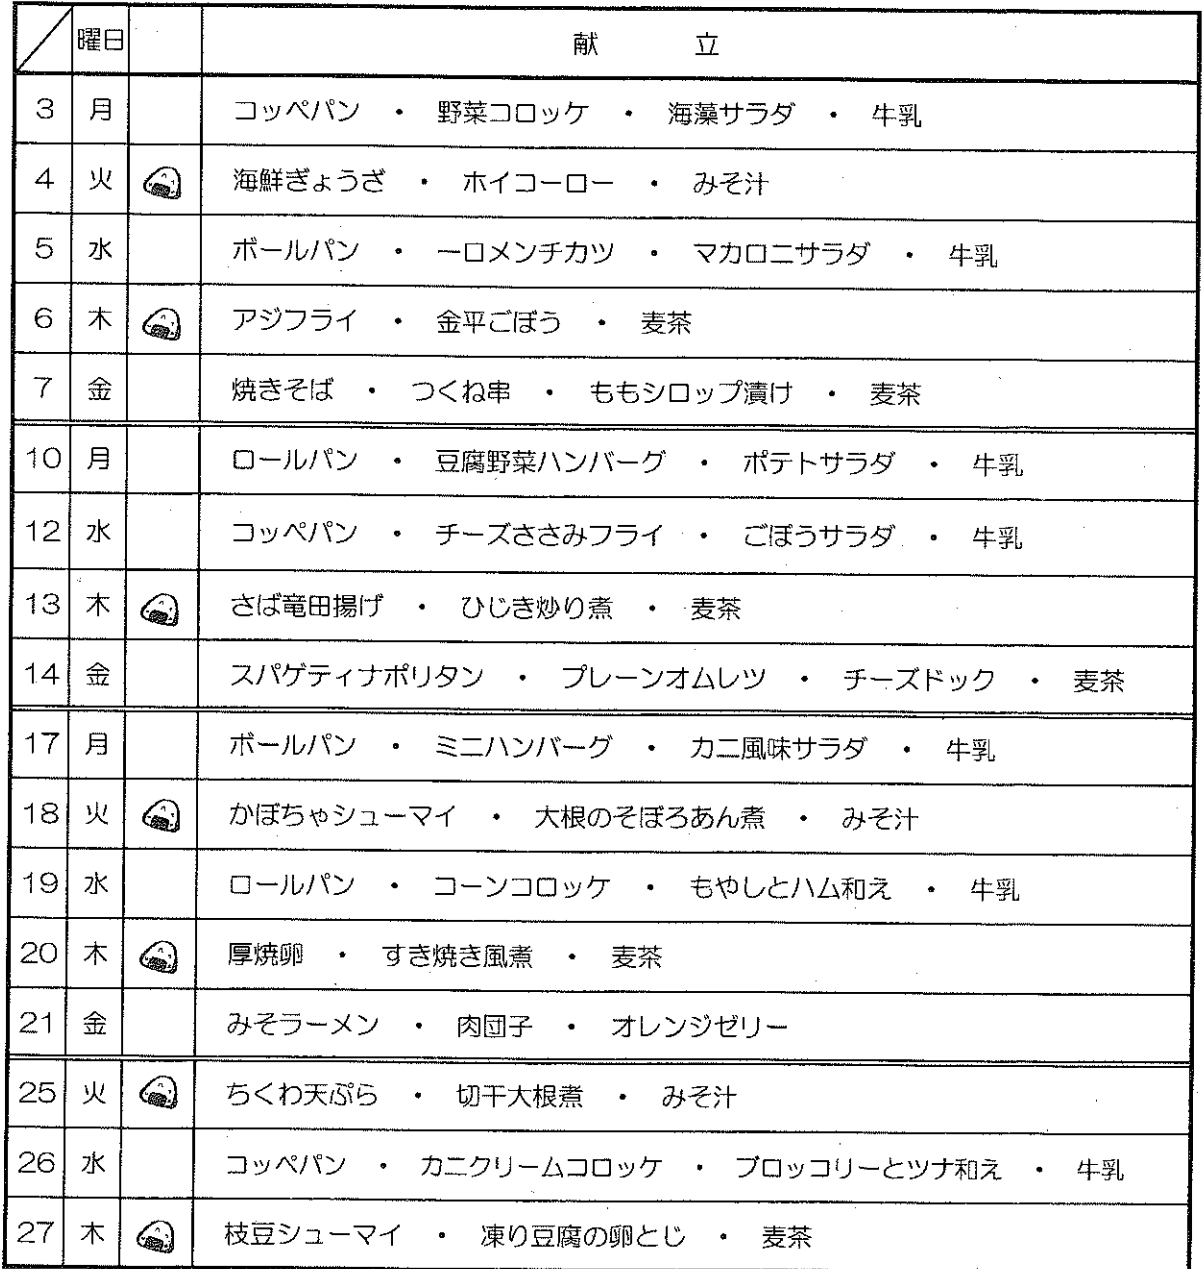 曜日 献立
3 月 コッペパン ・ 野菜コロッケ ・ 海藻サラダ ・ 牛乳
4 火 海鮮ぎょうざ ・ ホイコーロー ・ みそ汁
5 水 ボールパン ・ 一口メンチカツ ・ マカロニサラダ ・ 牛乳
6 木 アジフライ ・ 金平ごぼう ・ 麦茶
7 金 焼きそば ・ つくね串 ・ ももシロップ漬け ・ 麦茶
10 月 ロールパン ・ 豆腐野菜ハンバーグ ・ ポテトサラダ ・ 牛乳
12 水 コッペパン ・ チーズささみフライ ・ ごぼうサラダ ・ 牛乳
13 木 さば竜田揚げ ・ ひじき炒り煮 ・ 麦茶
14 金 スパゲティナポリタン ・ プレーンオムレツ ・ チーズドック ・ 麦茶
17 月 ボールパン ・ ミニハンバーグ ・ カニ風味サラダ ・ 牛乳
18 火 かぼちゃシューマイ ・ 大根のそぼろあん煮 ・ みそ汁
19 水 ロールパン ・ コーンコロッケ ・ もやしとハム和え ・ 牛乳
20 木 厚焼卵 ・ すき焼き風煮 ・ 麦茶
21 金 みそラーメン ・ 肉団子 ・ オレンジゼリー
25 火 ちくわ天ぷら ・ 切干大根煮 ・ みそ汁
26 水 コッペパン ・ カニクリームコロッケ ・ ブロッコリーとツナ和え ・ 牛乳
27 木 枝豆シューマイ ・ 凍り豆腐の卵とじ ・ 麦茶